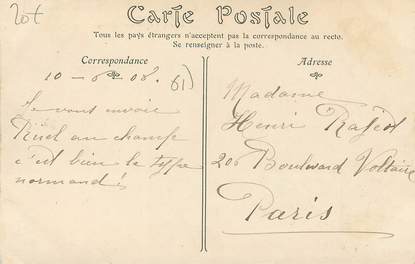 Lot
Carte Postale
Tous les pays étrangers n'acceptent pas la correspondance au recto.
Se renseigner à la poste.
Correspondance
Adresse
10-6-08.
61)
Je vous envoie
au champ
c'est bien le type
normand
Madame
Henri
206 Boulevard Voltaire
Paris